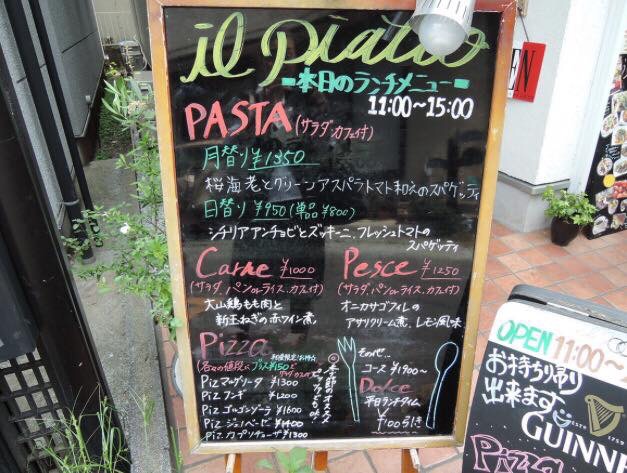 il Piatto
本日のランチメニュー
11:00~15:00
PASTA (サラダ・カフェ付)
月替り ¥1350
桜海老とグリーンアスパラトマト和えのスパゲッティ
日替り ¥950 (単品 ¥800)
シチリアアンチョビとズッキーニ、フレッシュトマトの
スパゲッティ
Carne ¥1000
(サラダ、パンorライス、カフェ付)
大山鶏もも肉と
新玉ねぎの赤ワイン煮
Pesce ¥1250
(サラダ、パンorライス、カフェ付)
オニカサゴフィレの
アサリクリーム煮、レモン風味
Pizza
(各々の値段にプラス¥150で
Piz マルゲリータ ¥1300
Piz フンギ ¥1200
Piz ゴルゴンゾーラ ¥1600
Piz ジェノベーゼ ¥1400
Piz カプリチョーザ ¥1300
季節のオススメ
ピッツァも!
その他、、
コース ¥1900~
Dolce
平日ランチタイム
¥100引き
EN
OPEN 11:00~
お持ち帰り
出来ます
GUINN
Pizza